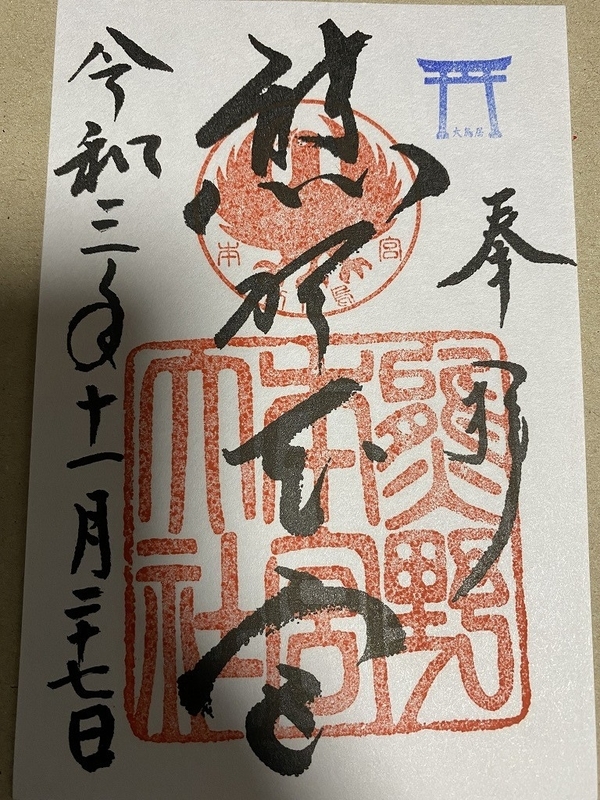 大鳥居
奉拝
熊野本宮
熊野
本宮
大社
令和三年十一月二十七日
本
宮